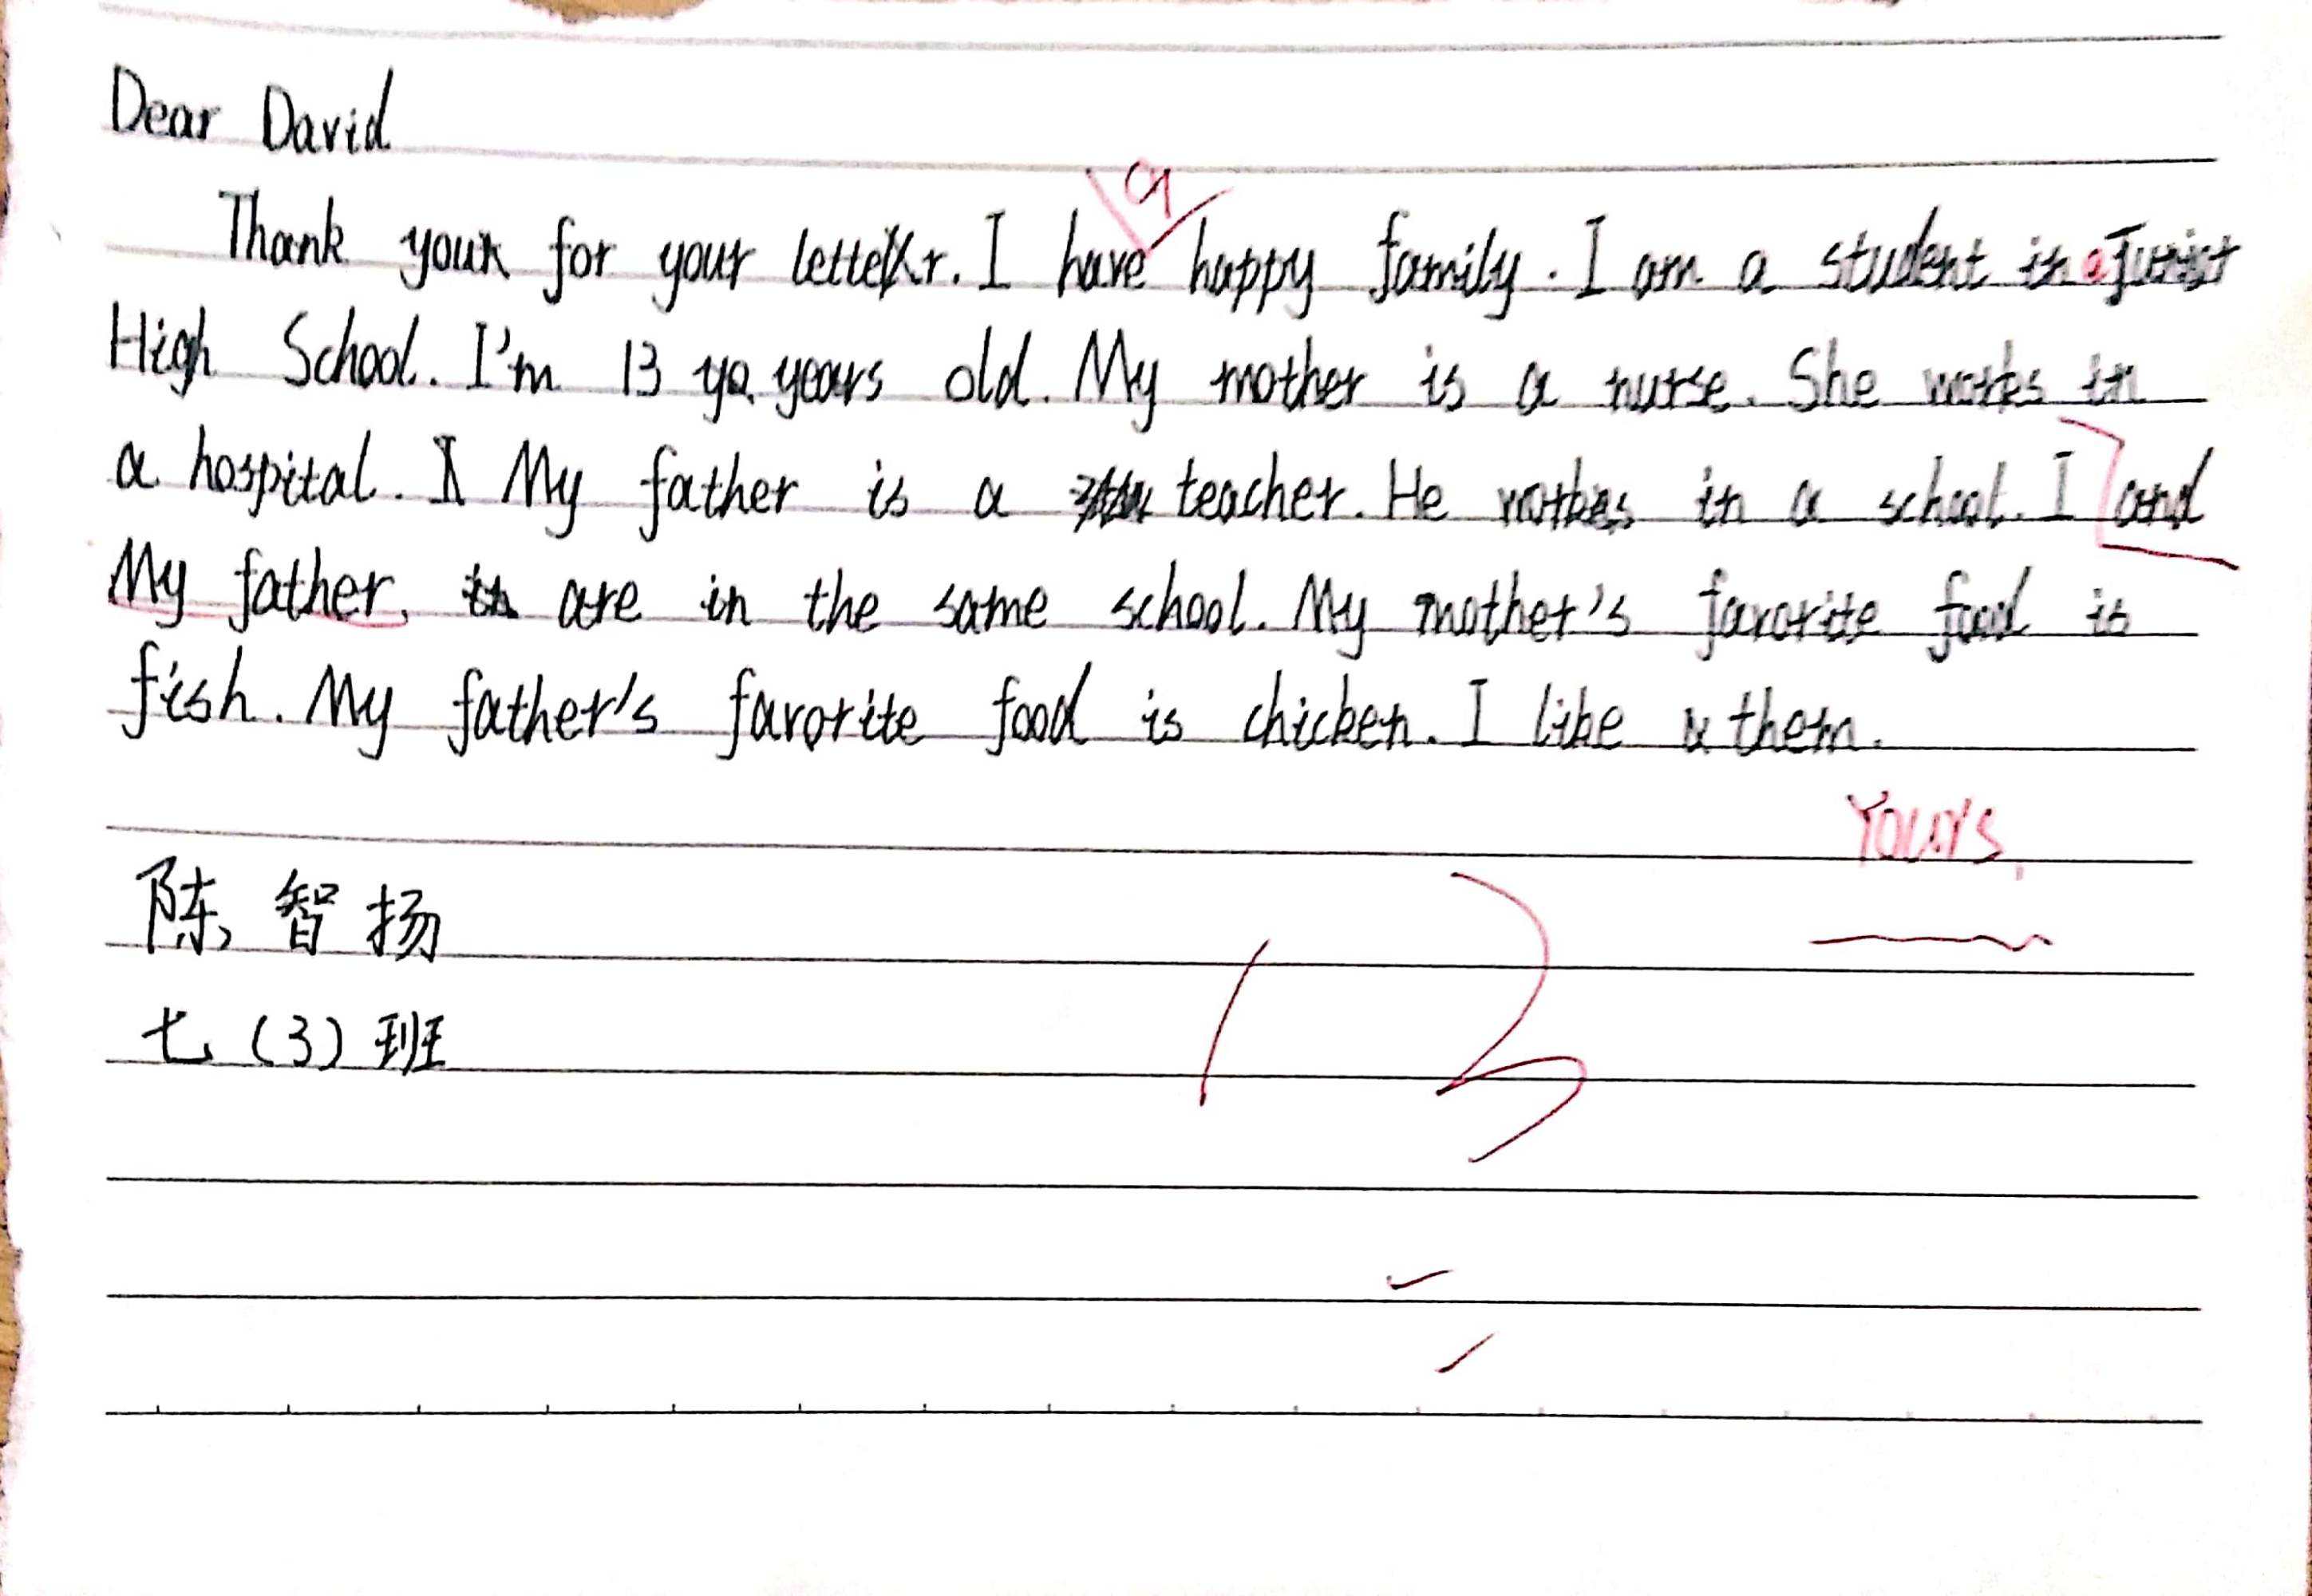 Dear David
a
Thank you for your letter. I have happy family. I am a student in a Junior
High School. I'm 13 years old. My mother is a nurse. She works in
a hospital. My father is a teacher. He works in a school. I and
My father, are in the same school. My mother's favorite food is
fish. My father's favorite food is chicken. I like them.
Yours,
陈智扬
七(3)班
13